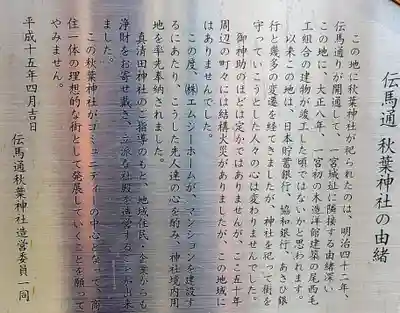 伝馬通 秋葉神社の由緒
この地に秋葉神社が祀られたのは、明治四十二年、
伝馬通りが開通して、一宮城址に隣接する由緒深い
この地に、大正八年、一宮初の木造洋館建築の尾西毛
工組合の建物が竣工した頃ではないかと思われます。
以来この地は、日本貯蓄銀行、協和銀行、あさひ銀
行と幾多の変遷を経てきましたが、神社を祀って街を
守っていこうとした人々の心は変わりませんでした。
御神助のほどは定かではありませんが、ここ五十年
周辺の町々には結構火災がありましたが、この地域に
はありませんでした。
この度、㈱エムジーホームが、マンションを建設す
るにあたり、こうした先人達の心を酌み、神社境内用
地を率先奉納されました。
真清田神社のご指導のもと、地域住民、企業からも
浄財をお寄せ戴き、立派な社殿を造営することが出来
ました。
この秋葉神社がコミュニティーの中心となって、商
住一体の理想的な街として発展していくことを願って
やみません。
平成十五年四月吉日
伝馬通秋葉神社造営委員一同